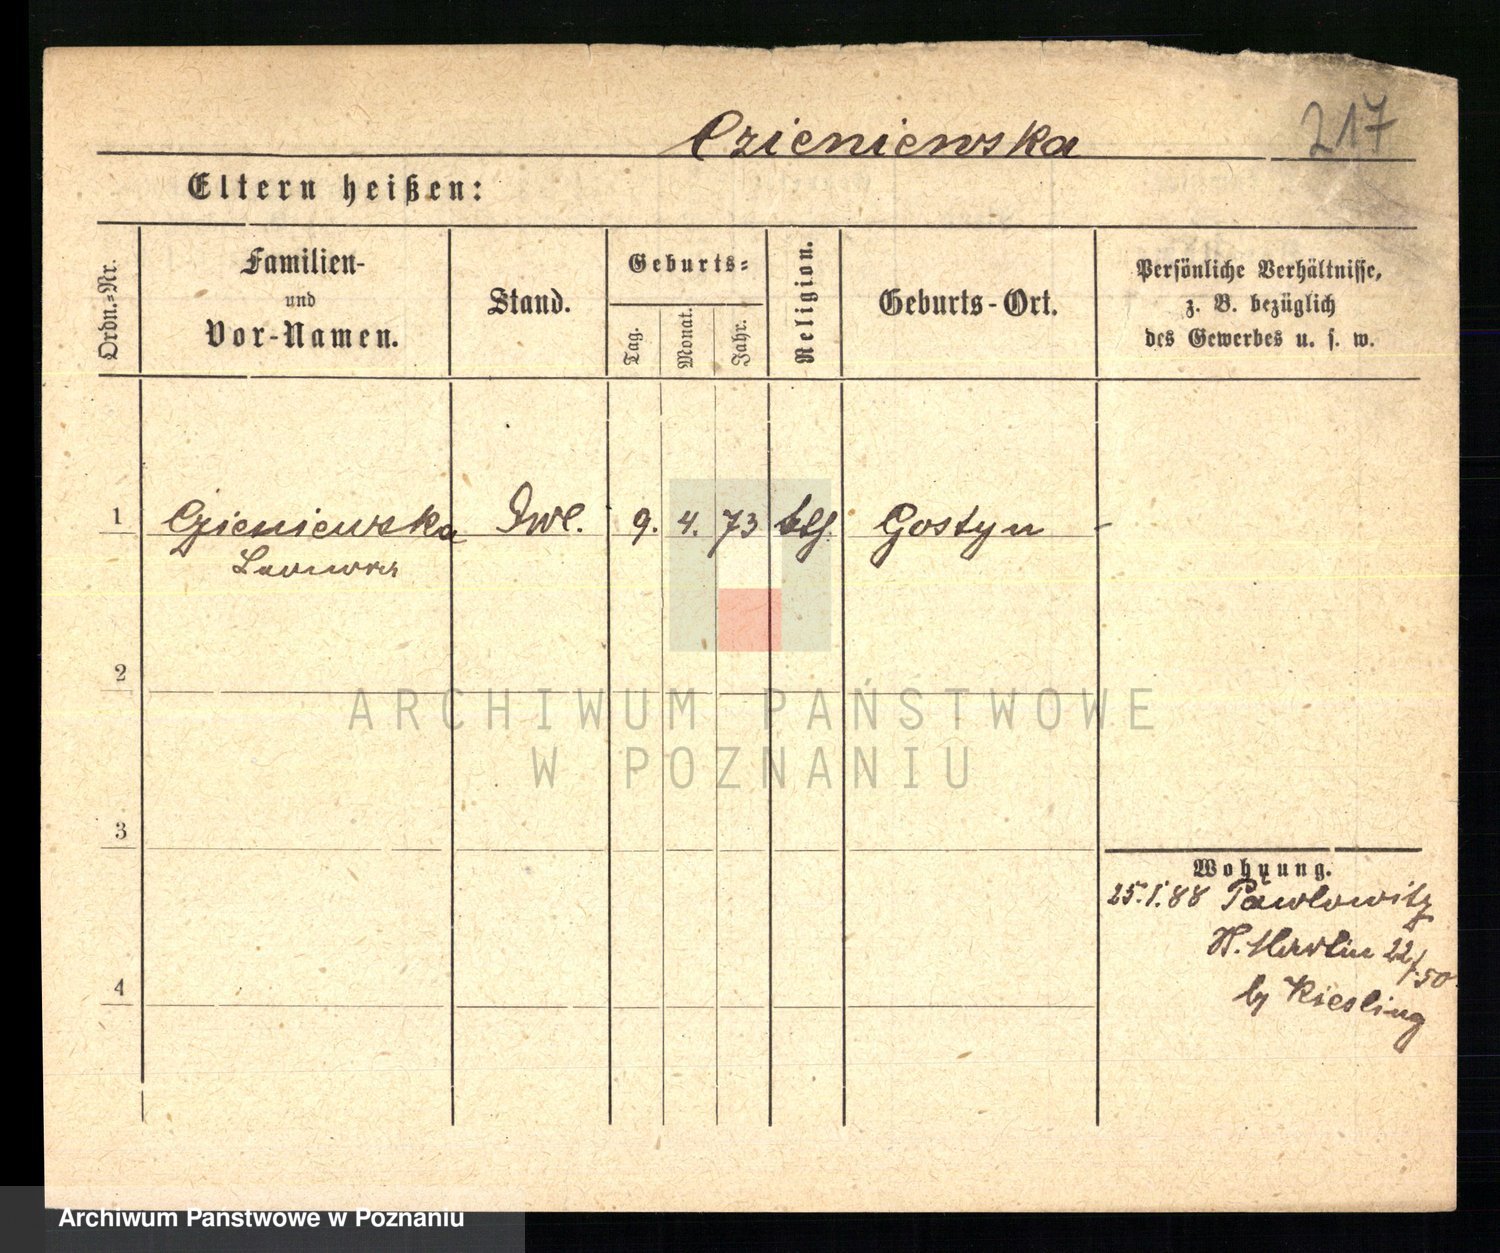 Czieniewska
217
Eltern heißen:
Ordn.=Nr.
Familien-
und
Vor-Namen.
Stand.
Geburts=
Tag.
Monat.
Jahr.
Religion.
Geburts-Ort.
Persönliche Verhältnisse,
z. B. bezüglich
des Gewerbes u. s. w.
1 Czieniewska 9. 4. 73 Gostyn
2
3
4
Wohnung.
25.1.88 Pawlowitz
St. Martin 22/50
by Kiesling
ARCHIWUM PAŃSTWOWE
W POZNANIU
Archiwum Państwowe w Poznaniu